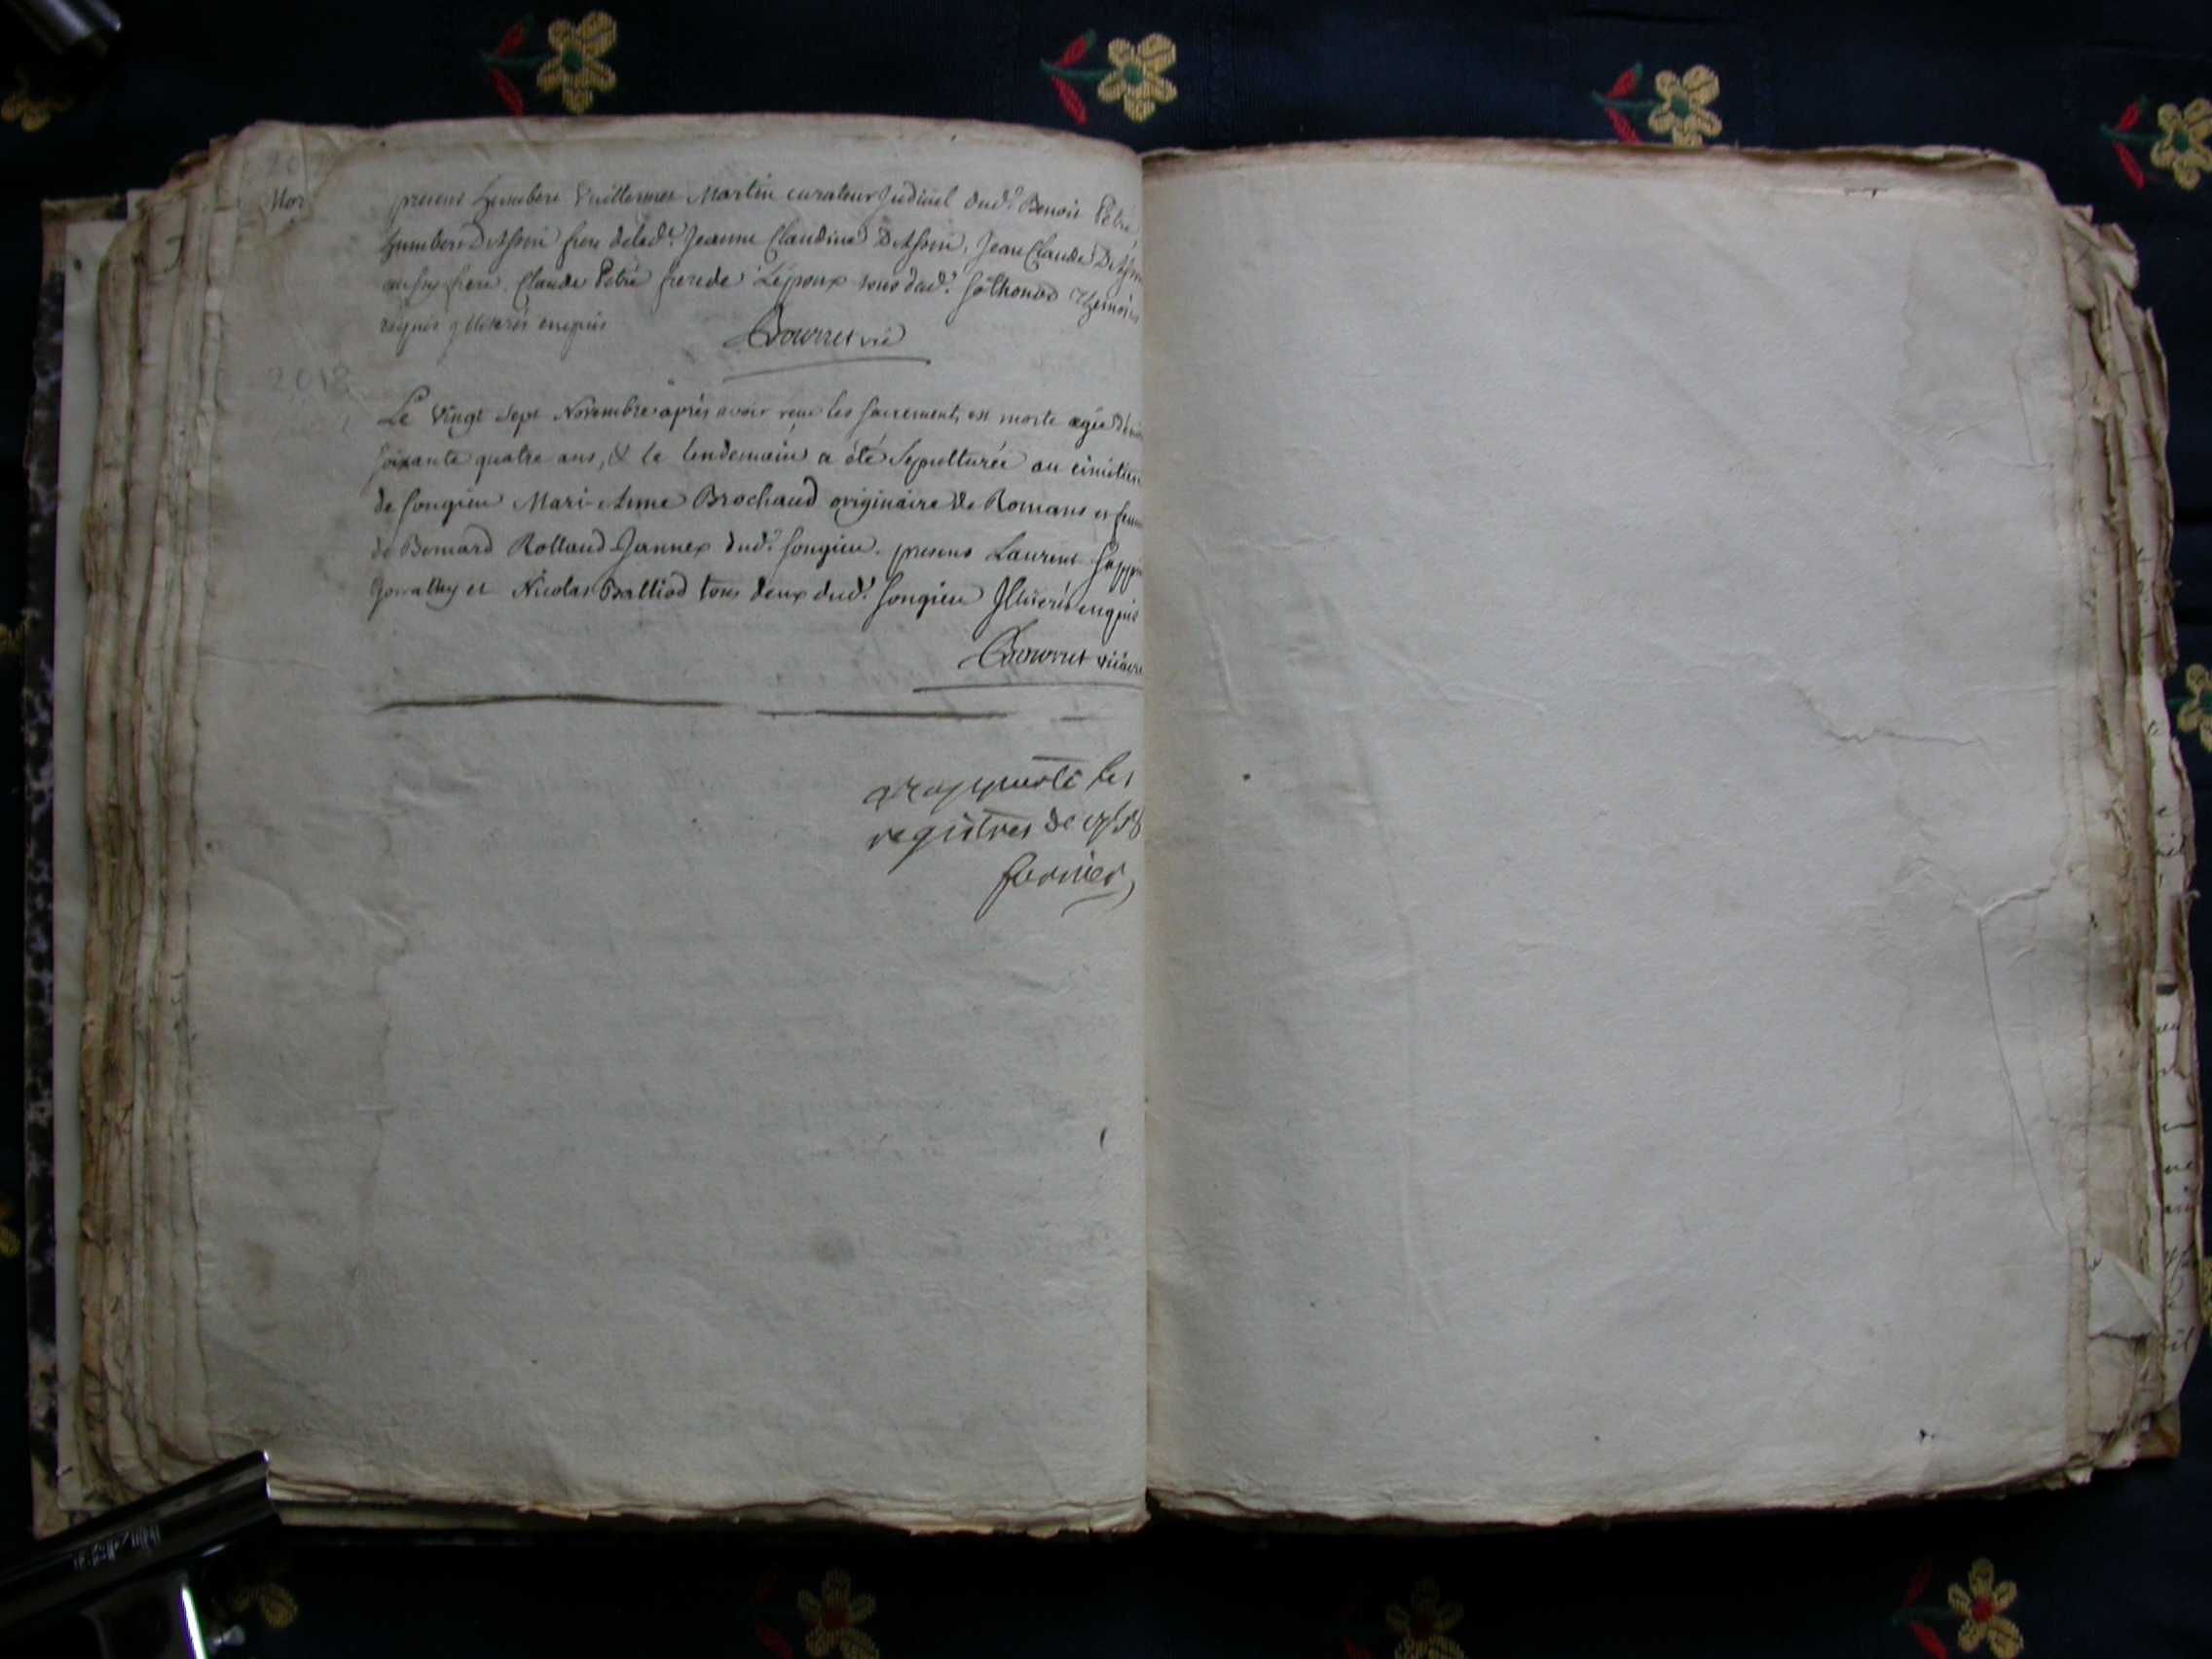 Mor
presens humbert Vuillermet Martin curateur Judiciel dud.t Benoit Petré
humbert frere delad.e Jeanne Claudine Jean Claude
aussy frere, Claude Petré frere de L'époux tous dud.t Sothonod
requis illiterés enquis
Bourret vic
2018
Le Vingt Sept Novembre après avoir reçu les sacrements, est morte agée
soixante quatre ans, & le lendemain a été sepulturée au cimitiere
de Songieu Marie Anne Brochaud originaire de Romans et femme
de Bernard Rolland Jannex dud.t Songieu. presens Laurent
et Nicolas Balliod tous deux dud.t Songieu Illiterés enquis
Bourret vicaire
apapporté les
registres de